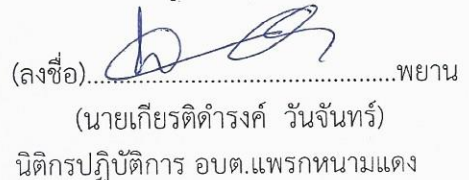 (ลงชื่อ)......................................................พยาน
(นายเกียรติดำรงค์ วันจันทร์)
นิติกรปฏิบัติการ อบต.แพรกหนามแดง